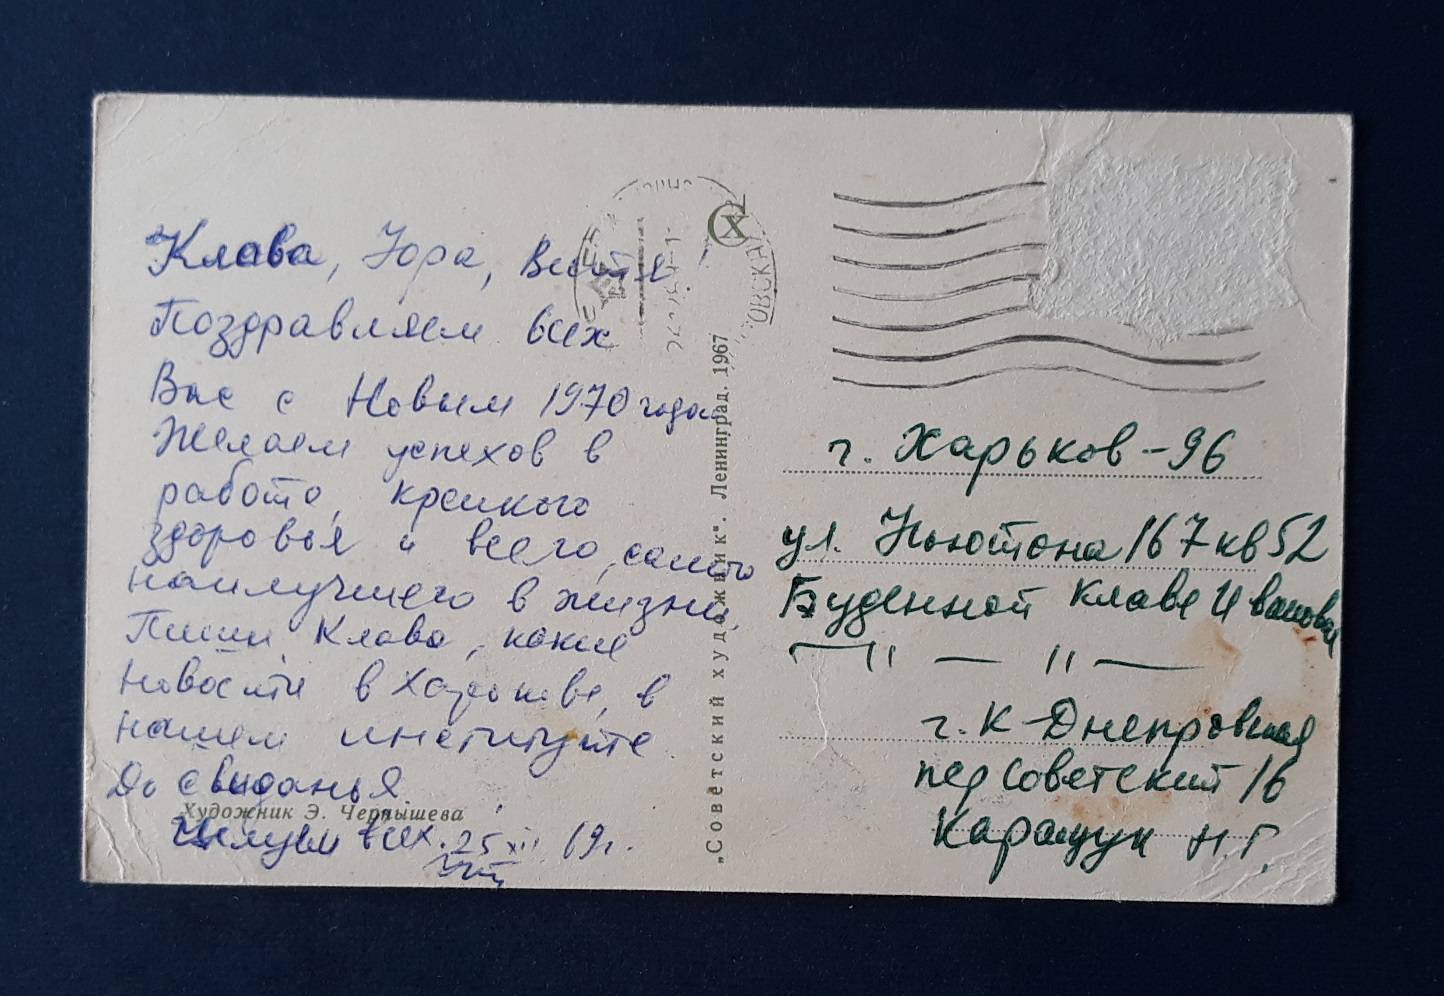 Клава, Юра, Витя
Поздравляем всех
Вас с Новым 1970 годом
Желаем успехов в
работе, крепкого
здоровья и всего, самого
наилучшего в жизни.
Пиши, Клава, какие
новости в Харькове, в
нашем институте
До свиданья
Художник Э. Чернышева
Целуем всех. 25 XII 69г.
„Советский художник". Ленинград. 1967
СХ
ОВСКА
г. Харьков-96
ул. Ньютона 167 кв 52
Буденной Клаве Ивановне
— " — " —
г. К-Днепровская
пер Советский 16
Каращук Н.Г.